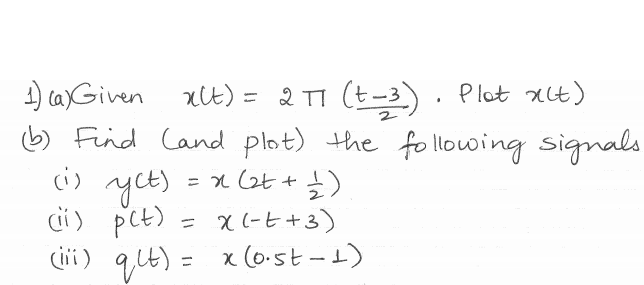 1) (a) Given x(t) = 2 π (t-3/2) . Plot x(t)
(b) Find (and plot) the following signals
(i) y(t) = x (2t + 1/2)
(ii) p(t) = x (-t + 3)
(iii) q(t) = x (0.5t - 1)